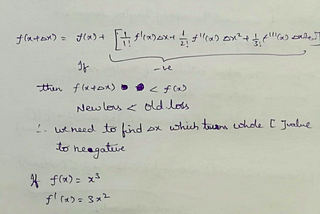 f(x+Δx) = f(x) + [1/1! f'(x)Δx + 1/2! f''(x)Δx² + 1/3! f'''(x)Δx³...]
If -ve
then f(x+Δx) < f(x)
New loss < old loss
∴ we need to find Δx which turns whole [ ] value
to negative
If f(x) = x³
f'(x) = 3x²